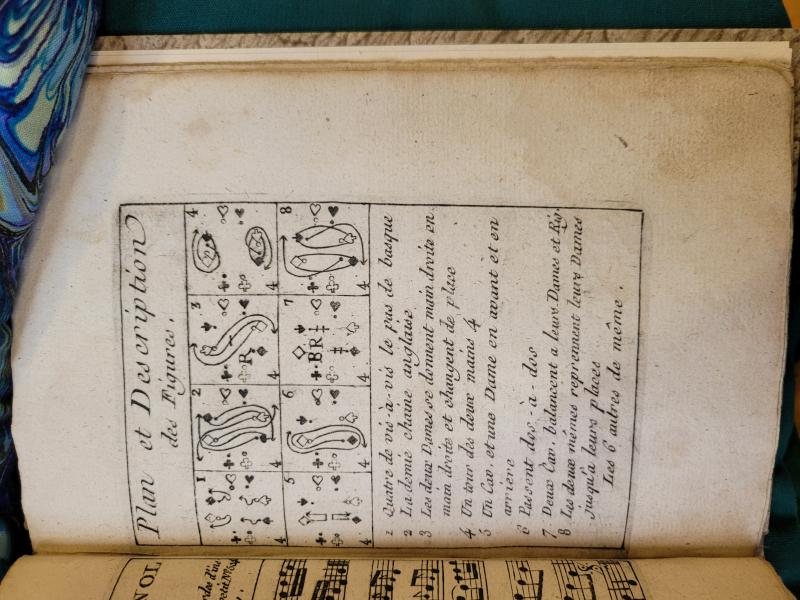 Plan et Description
des Figures.
1 2 3 4
R
4 4 4 4
5 6 7 8
BR
4 4 4 4
1 Quatre de vis-à-vis le pas de basque
2 La demie chaine anglaise
3 Les deux Dames se donnent main droite en
main droite et changent de place
4 Un tour des deux mains 4
5 Un Cav. et une Dame en avant et en
arriere
6 Passent dos-à-dos
7 Deux Cav. balancent a leurs Dames et Rig.
8 Les deux mêmes reprennent leurs Dames
jusqu'à leurs places
Les 6 autres de même.
NOL